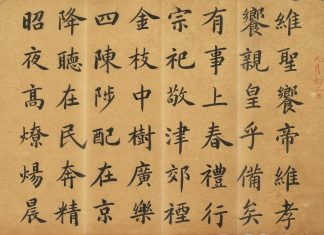 維聖饗帝維孝
饗親皇乎備矣
有事上春禮行
宗祀敬津郊禋
金枝中樹廣樂
四陳陟配在京
降聽在民奔精
昭夜高燎煬晨